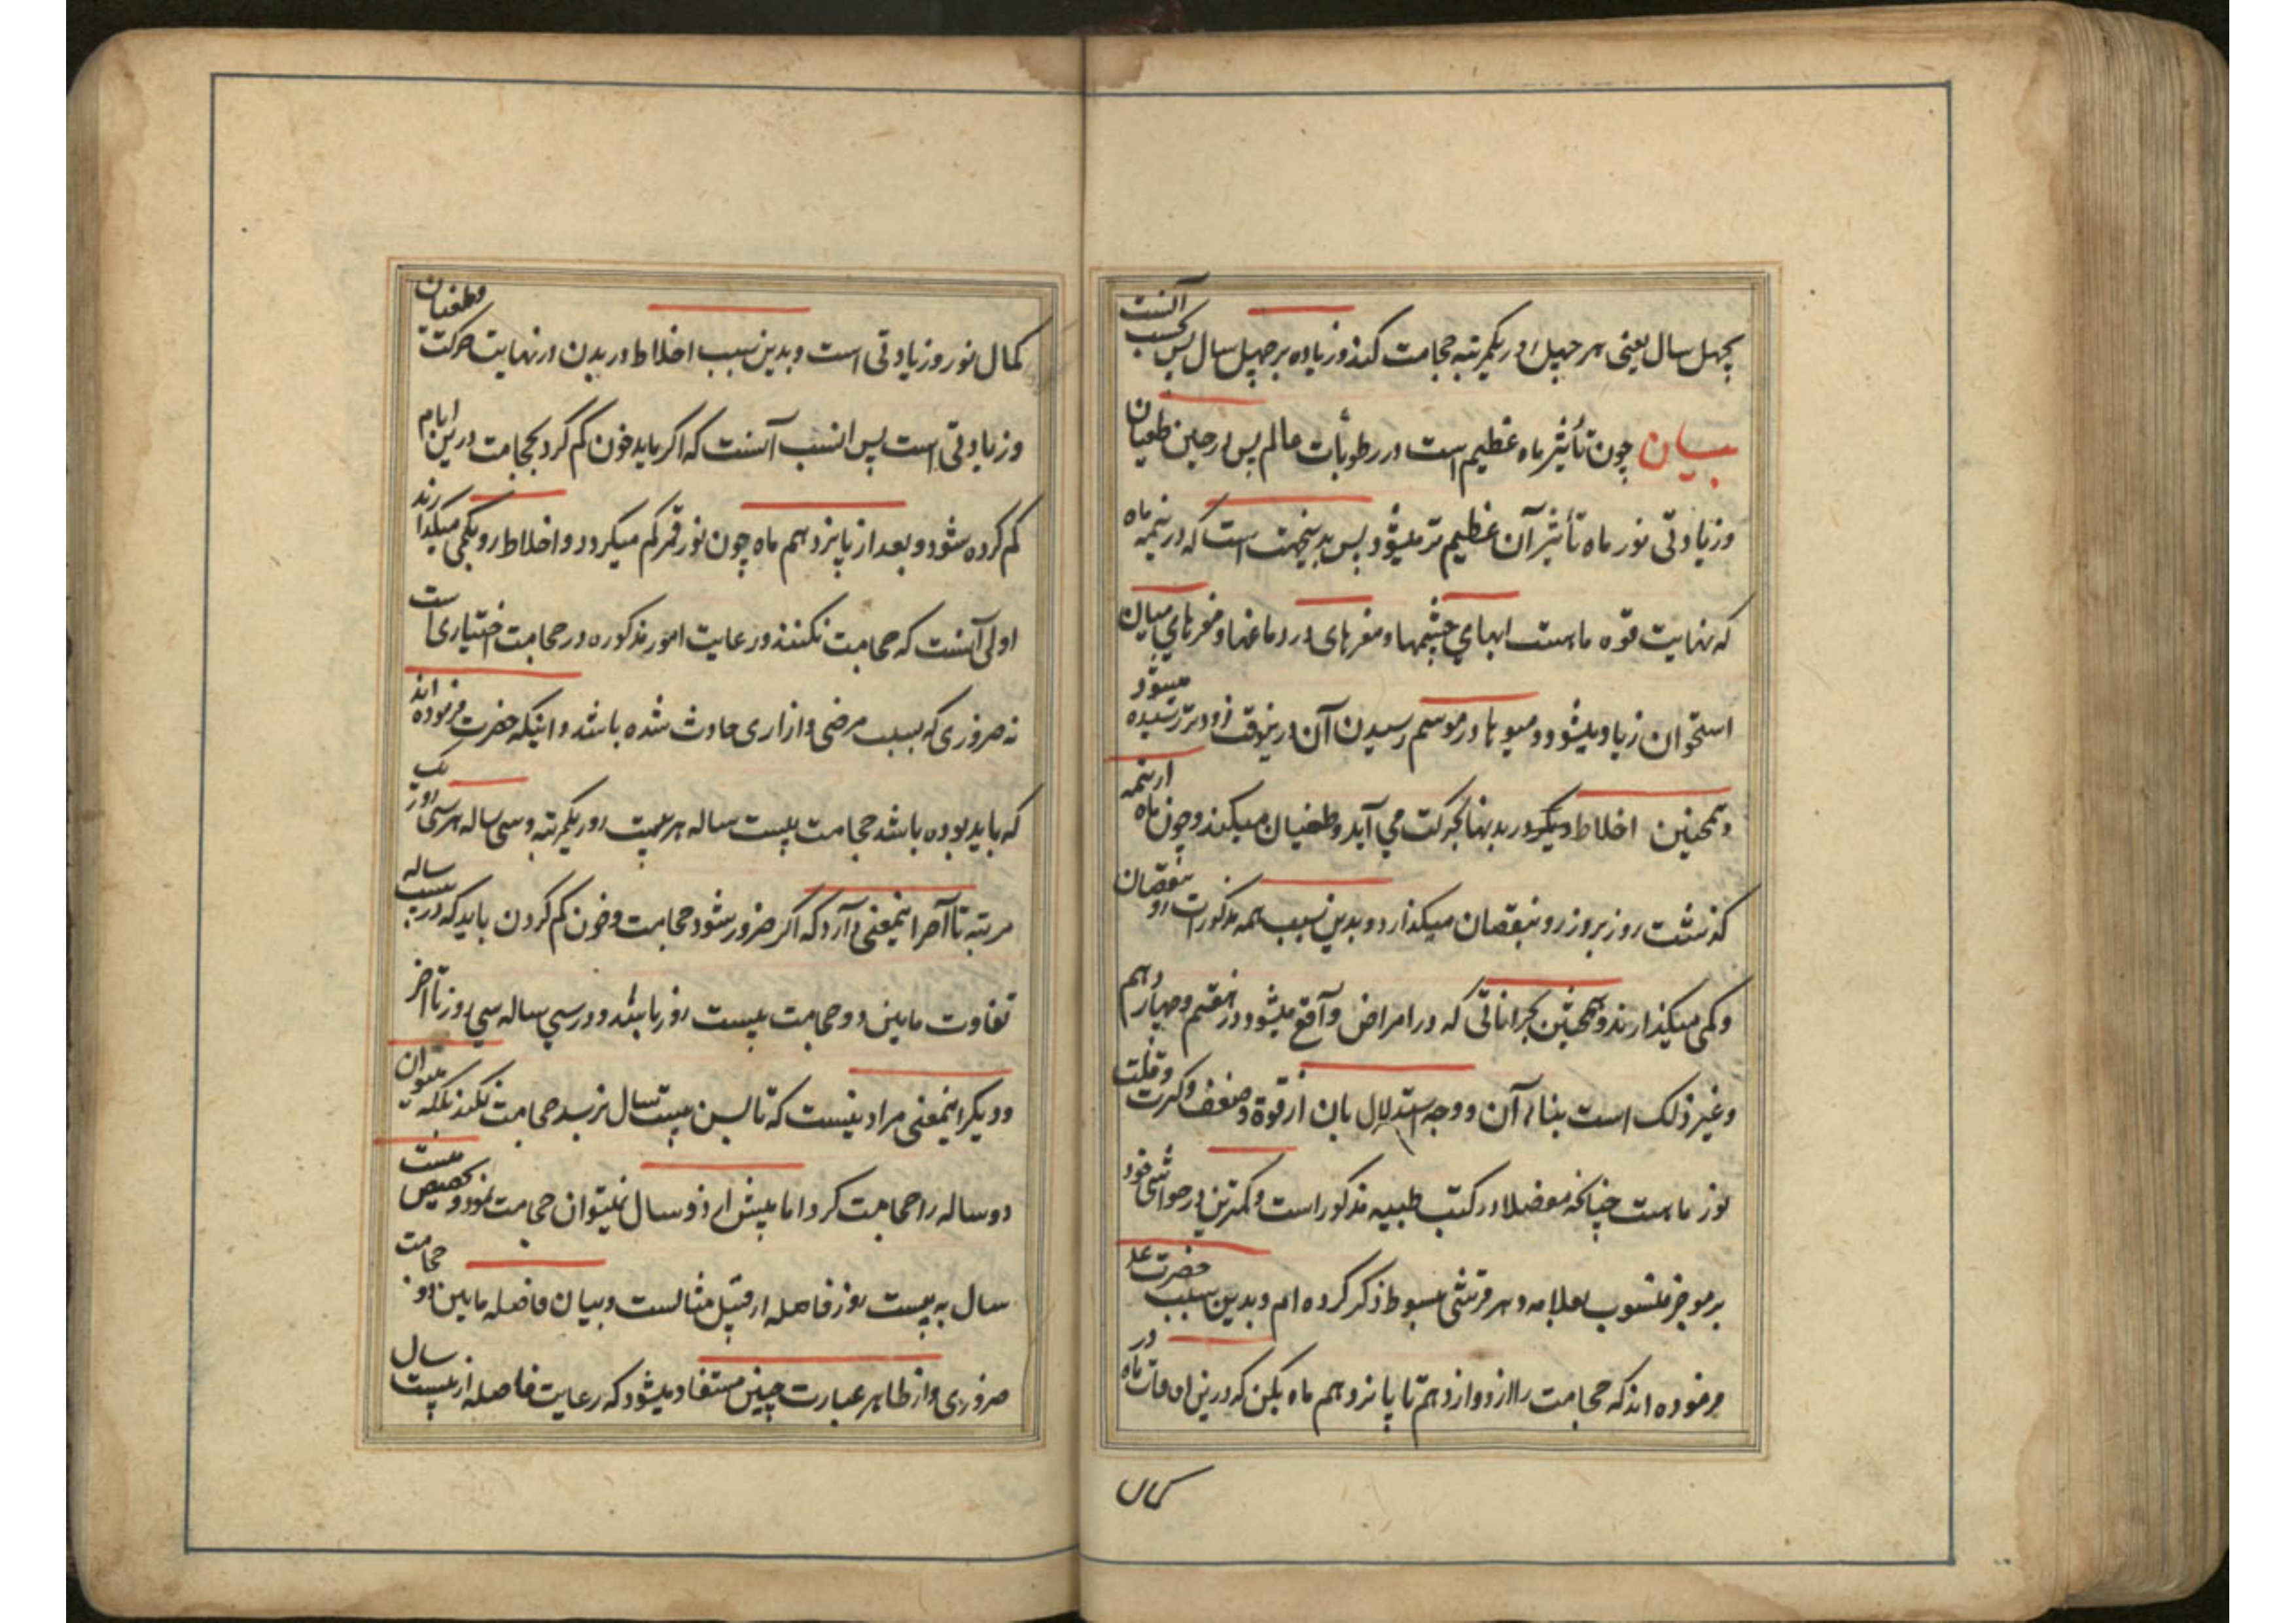 چهل سال یعنی هر چهل روز یکمرتبه حجامت کند و زیاده بر چهل سال پس بحسب آنست
بیان چون تأثیر ماه عظیم است در رطوبات عالم پس در حین طغیان
و زیادتی نور ماه تأثیر آن عظیم تر میشود پس بدینجهت است که در نیمه ماه
که نهایت قوه ماهست ابهای چشمها و مغزهای در دماغها و مغزهای میان
استخوان زیاد میشود و میوها در موسم رسیدن آن درینوقت زودتر رسیده میشود
و همچنین اخلاط دیگر در بدنها بحرکت می آید و طغیان میکند و چون ماه از نیمه
گذشت روز بروز رو بنقصان میگذارد و بدین سبب همه مذکورات رو بنقصان
و کمی میگذارند و همچنین بحراناتی که در امراض واقع میشود در هفتم و چهاردهم
و غیر ذلک است بناء آن و وجه استدلال بان از قوة و ضعف و کثرت و قلت
نور ماهست چنانکه مفصلا در کتب طبیه مذکور است و کمترین در حواشی خود
بر موجز منسوب بعلامه دهر قرشی مبسوط ذکر کرده ام و بدین سبب حضرت ع
فرموده اند که حجامت را از دوازدهم تا پانزدهم ماه بکن که درین اوقات ماه در
کمال
کمال نور و زیادتی است و بدین سبب اخلاط در بدن در نهایت حرکت و طغیان
و زیادتی است پس انسب آنست که اگر باید خون کم کرد بحجامت درین ایام
کم کرده شود و بعد از پانزدهم ماه چون نور قمر کم میگردد و اخلاط رو بکمی میگذارند
اولی آنست که حجامت نکنند و رعایت امور مذکوره در حجامت اختیاری است
نه ضروری که بسبب مرضی و ازاری حادث شده باشد و اینکه حضرت فرموده اند
که باید بوده باشد حجامت بیست ساله هر بیست روز یکمرتبه و سی ساله هر سی روز یک
مرتبه تا آخر اینمعنی دارد که اگر ضرور شود حجامت و خون کم کردن باید که در بیست ساله
تفاوت مابین دو حجامت بیست روز باشد و در سی ساله سی روز تا اخر
و دیگر اینمعنی مراد نیست که تا بسن بیست سال نرسد حجامت نکند بلکه میتوان
دو ساله را حجامت کرد اما پیش از دو سال نمیتوان حجامت نمود و تخصیص بیست
سال به بیست روز فاصله از قبیل مثالست و بیان فاصله مابین دو حجامت
ضروری و از ظاهر عبارت چنین مستفاد میشود که رعایت فاصله از بیست سال